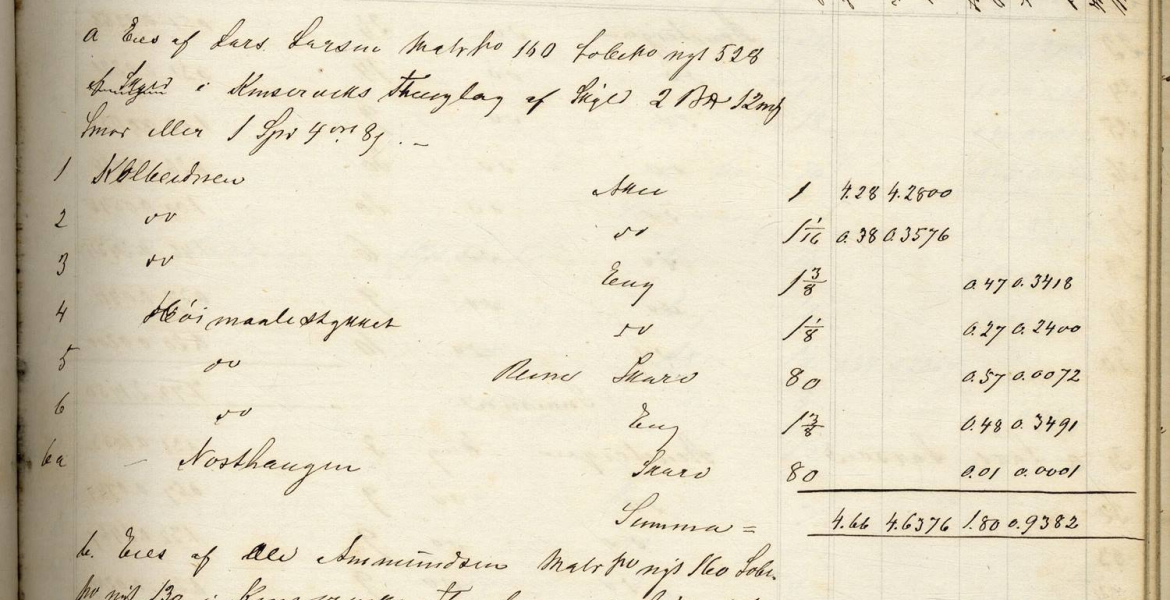 a Eies af Lars Larsen Matr No 160 Løbe No nyt 528
i Kinserviks Thinglag af Skyld 2 12 mk
Smør eller 1 Spd 4 ort 8 s. –
1 Aker 1 4.28 4.2800
2 do do 1 1/16 0.38 0.3576
3 do Eng 1 3/8 0.47 0.3418
4 Høimaalestykket do 1 1/8 0.27 0.2400
5 do Skard 80 0.57 0.0072
6 do Eng 1 3/8 0.48 0.3491
6a – Nosthaugen Skard 80 0.01 0.0001
Summa = 4.66 4.6376 1.80 0.9382
b. Eies af Ole Ammundsen Matr No nyt 160 Løbe
No nyt